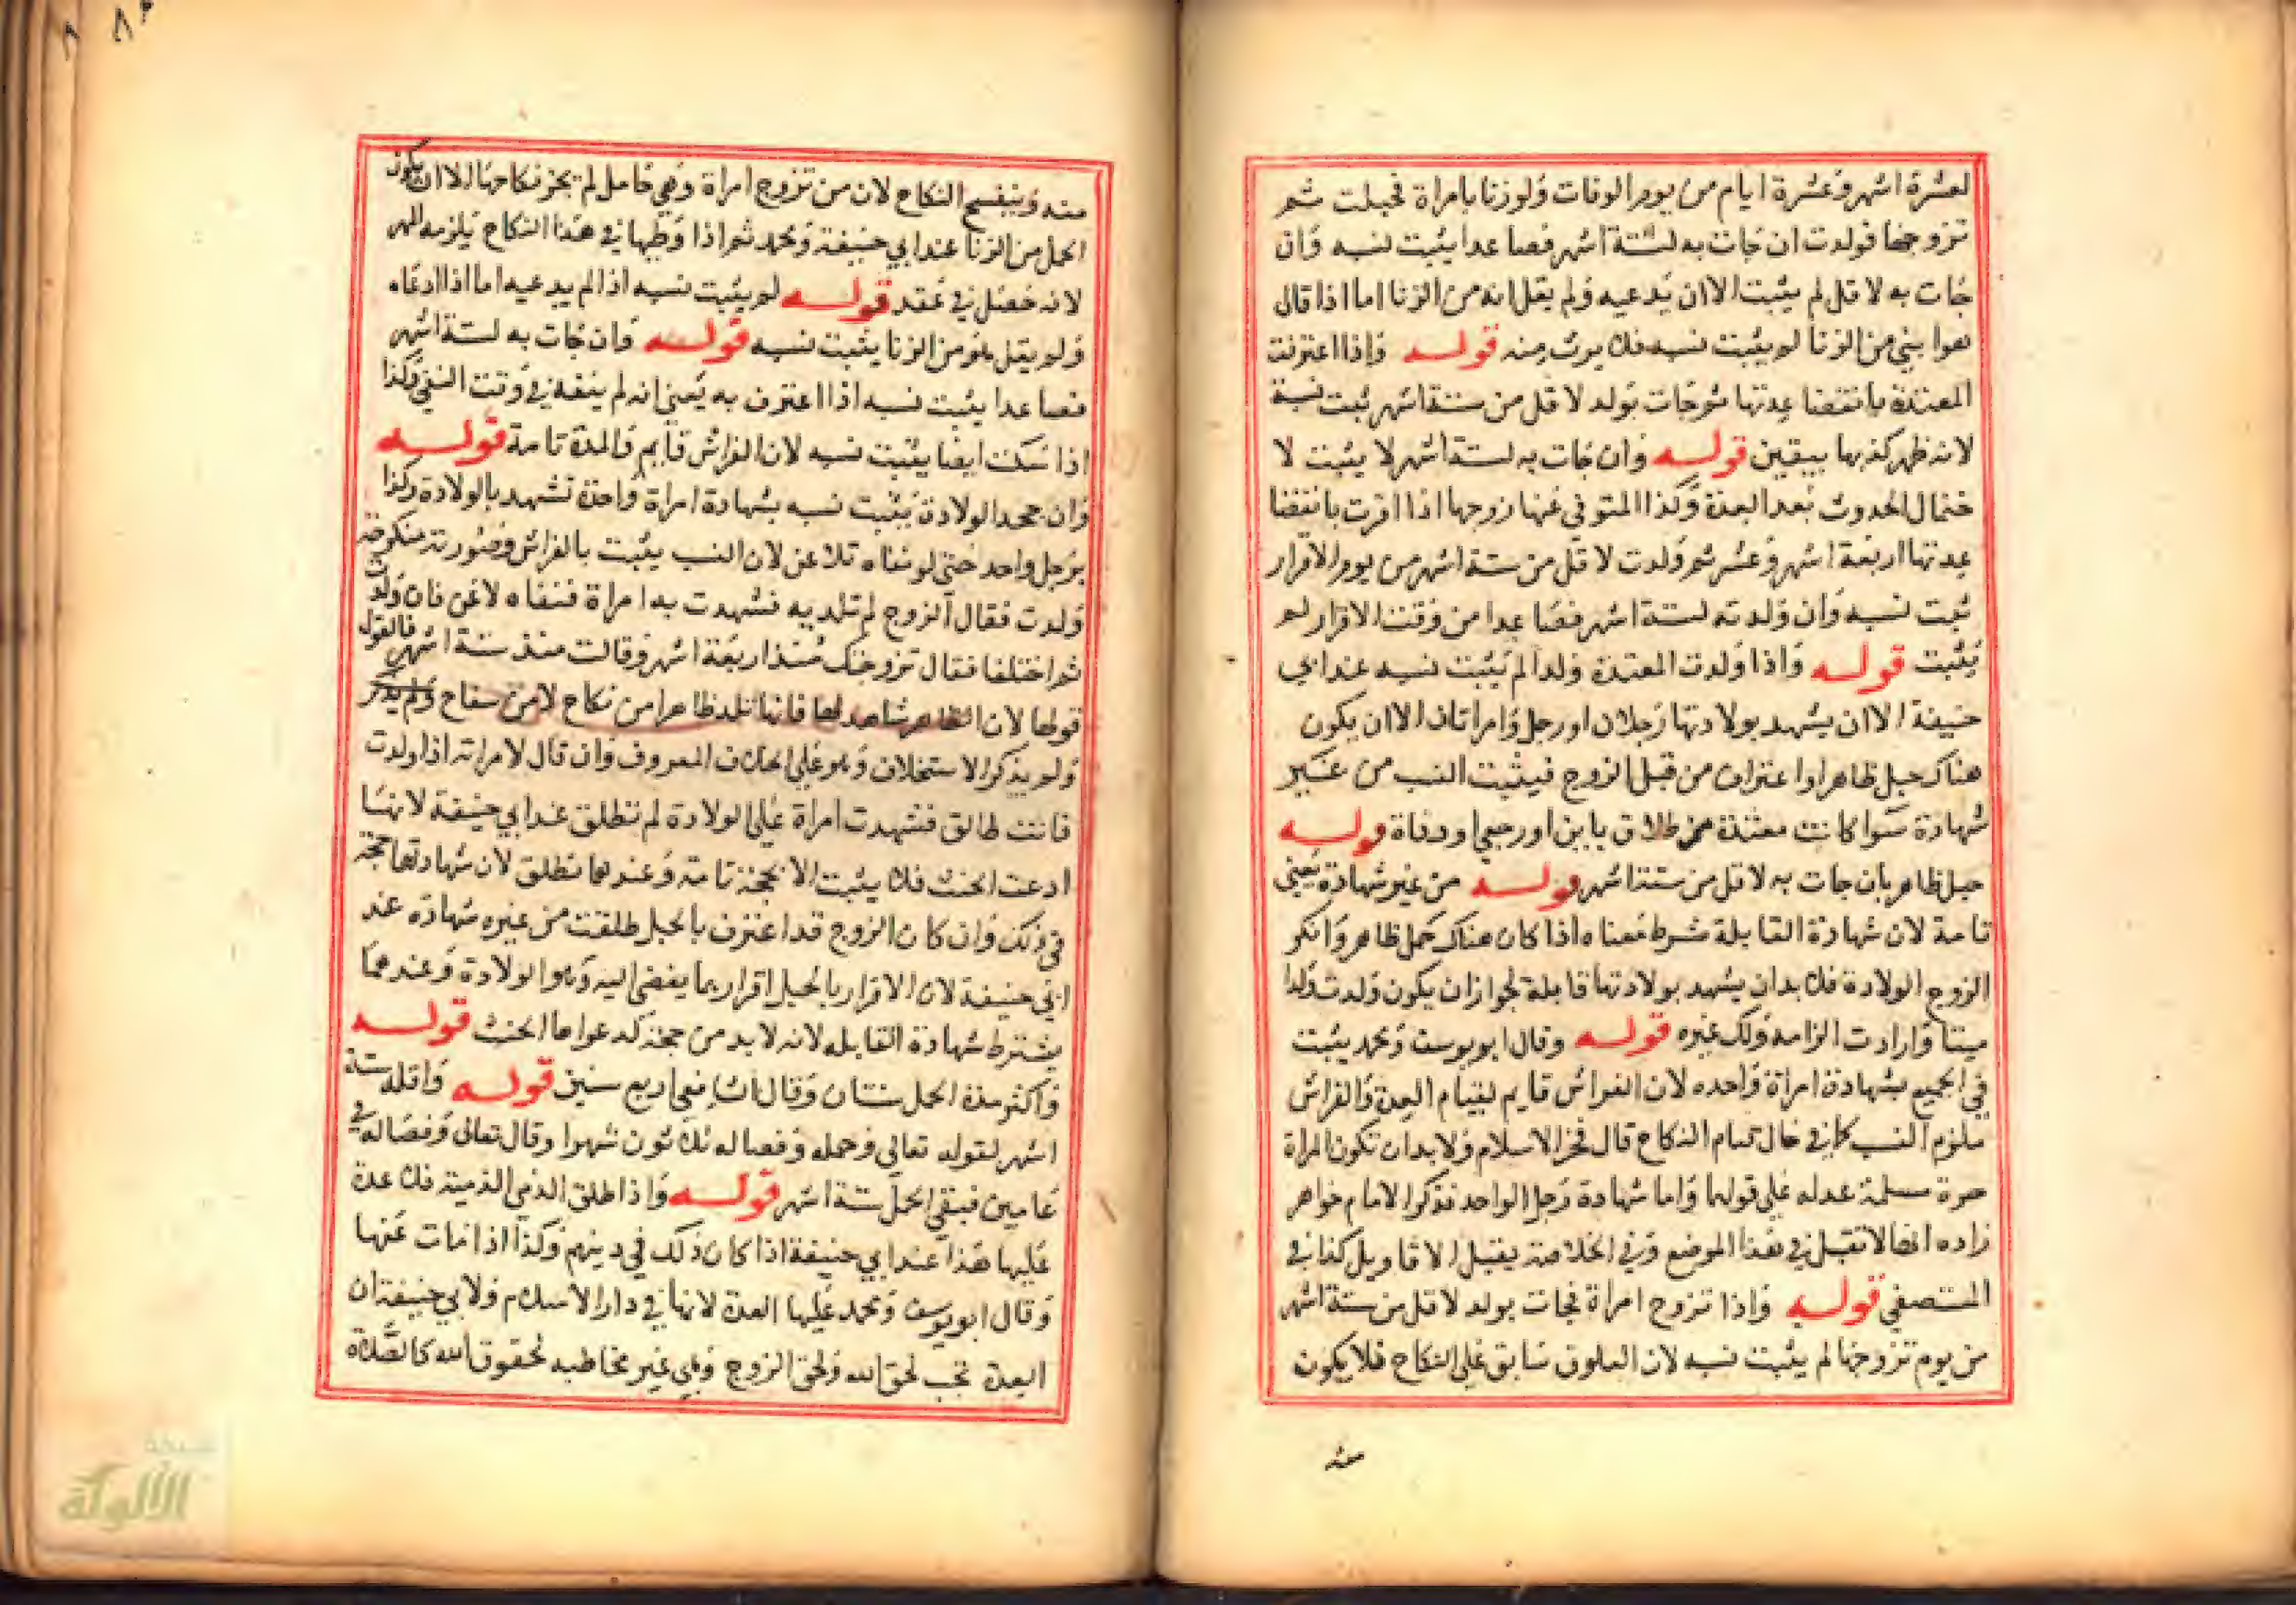 لعشرة اشهر وعشرة ايام من يوم الوفات ولو زنا بامراة فحبلت ثم
تزوجها فولدت ان جات به لستة اشهر فصاعدا يثبت نسبه وان
جات به لاقل لم يثبت الا ان يدعيه ولم يقل انه من الزنا اما اذا قال
هو ابني من الزنا لم يثبت نسبه فلا يرث منه قوله واذا اعترفت
المعتدة بانقضا عدتها ثم جات بولد لاقل من ستة اشهر ثبت نسبه
لانه ظهر كذبها بيقين قوله وان جات به لستة اشهر لا يثبت لا
حتمال الحدوث بعد العدة وكذا المتوفى عنها زوجها اذا اقرت بانقضا
عدتها اربعة اشهر وعشر ثم ولدت لاقل من ستة اشهر من يوم الاقرار
ثبت نسبه وان ولدته لستة اشهر فصاعدا من وقت الاقرار لم
يثبت قوله واذا ولدت المعتدة ولدا لم يثبت نسبه عند ابي
حنيفة الا ان يشهد بولادتها رجلان او رجل وامراتان الا ان يكون
هناك حبل ظاهر او اعتراف من قبل الزوج فيثبت النسب من غير
شهادة سوا كانت معتدة من طلاق باين او رجعي او وفاة قوله
حبل ظاهر بان جات به لاقل من ستة اشهر قوله من غير شهادة يعني
تامة لان شهادة القابلة شرط معناه اذا كان هناك حمل ظاهر وانكر
الزوج الولادة فلا بد ان يشهد بولادتها قابلة لجواز ان يكون ولدت ولدا
ميتا وارادت الزامه ولد غيره قوله وقال ابو يوسف ومحمد يثبت
في الجميع بشهادة امراة واحده لان الفراش قايم لقيام العدة والفراش
ملزم النسب كما في حال قيام النكاح قال فخر الاسلام ولا بد ان تكون المراة
حرة مسلمة عدله على قولهما واما شهادة رجل الواحد فذكر الامام خواهر
زاده انها لا تقبل في هذا الموضع وفي الخلاصة يقبل الاقاويل كذا في
المستصفي قوله واذا تزوج امراة فجات بولد لاقل من ستة اشهر
من يوم تزوجها لم يثبت نسبه لان العلوق سابق على النكاح فلا يكون
منه
منه وينفسخ النكاح لان من تزوج امراة وهي حامل لم يجز نكاحها الا ان يكون
الحمل من الزنا عند ابي حنيفة ومحمد ثم اذا وطيها في هذا النكاح يلزمه المهر
لانه حصل في عقد قوله لم يثبت نسبه اذا لم يدعيه اما اذا ادعاه
ولم يقل هو من الزنا يثبت نسبه قوله وان جات به لستة اشهر
فصاعدا يثبت نسبه اذا اعترف به يعني انه لم ينفه في وقت النفي وكذا
اذا سكت ايضا يثبت نسبه لان الفراش قايم والمدة تامة قوله
وان جحد الولادة يثبت نسبه بشهادة امراة واحدة تشهد بالولادة وكذا
برجل واحد حتى لو نفاه تلاعن لان النسب يثبت بالفراش وصورته منكوحة
ولدت فقال الزوج لم تلديه فشهدت به امراة فنفاه لاعن فان ولدت
ثم اختلفا فقال تزوجتك منذ اربعة اشهر وقالت منذ ستة اشهر فالقول
قولها لان الظاهر شاهد لها فانها تلد ظاهرا من نكاح لا من سفاح
ولم يذكر الاستحلاف وهو على الخلاف المعروف وان قال لامراته اذا ولدت
فانت طالق فشهدت امراة على الولادة لم تطلق عند ابي حنيفة لانها
ادعت الحنث فلا يثبت الا بحجة تامة وعندهما تطلق لان شهادتها حجة
في ذلك وان كان الزوج قد اعترف بالحبل طلقت من غيره شهادة عند
ابي حنيفة لان الاقرار بالحبل اقرار بما يفضي اليه وهو الولادة وعندهما
يشترط شهادة القابله لانه لا بد من حجة لدعواها الحنث قوله
واكثر مدة الحمل سنتان وقال الشافعي اربع سنين قوله واقله ستة
اشهر لقوله تعالى وحمله وفصاله ثلاثون شهرا وقال تعالى وفصاله في
عامين فبقي الحمل ستة اشهر قوله واذا طلق الذمي الذمية فلا عدة
عليها هذا عند ابي حنيفة اذا كان ذلك في دينهم وكذا اذا مات عنها
وقال ابو يوسف ومحمد عليها العدة لانها في دار الاسلام ولابي حنيفة ان
العدة تجب لحق الله ولحق الزوج وهي غير مخاطبه لحقوق الله كالصلاة
شبكة
الألوكة